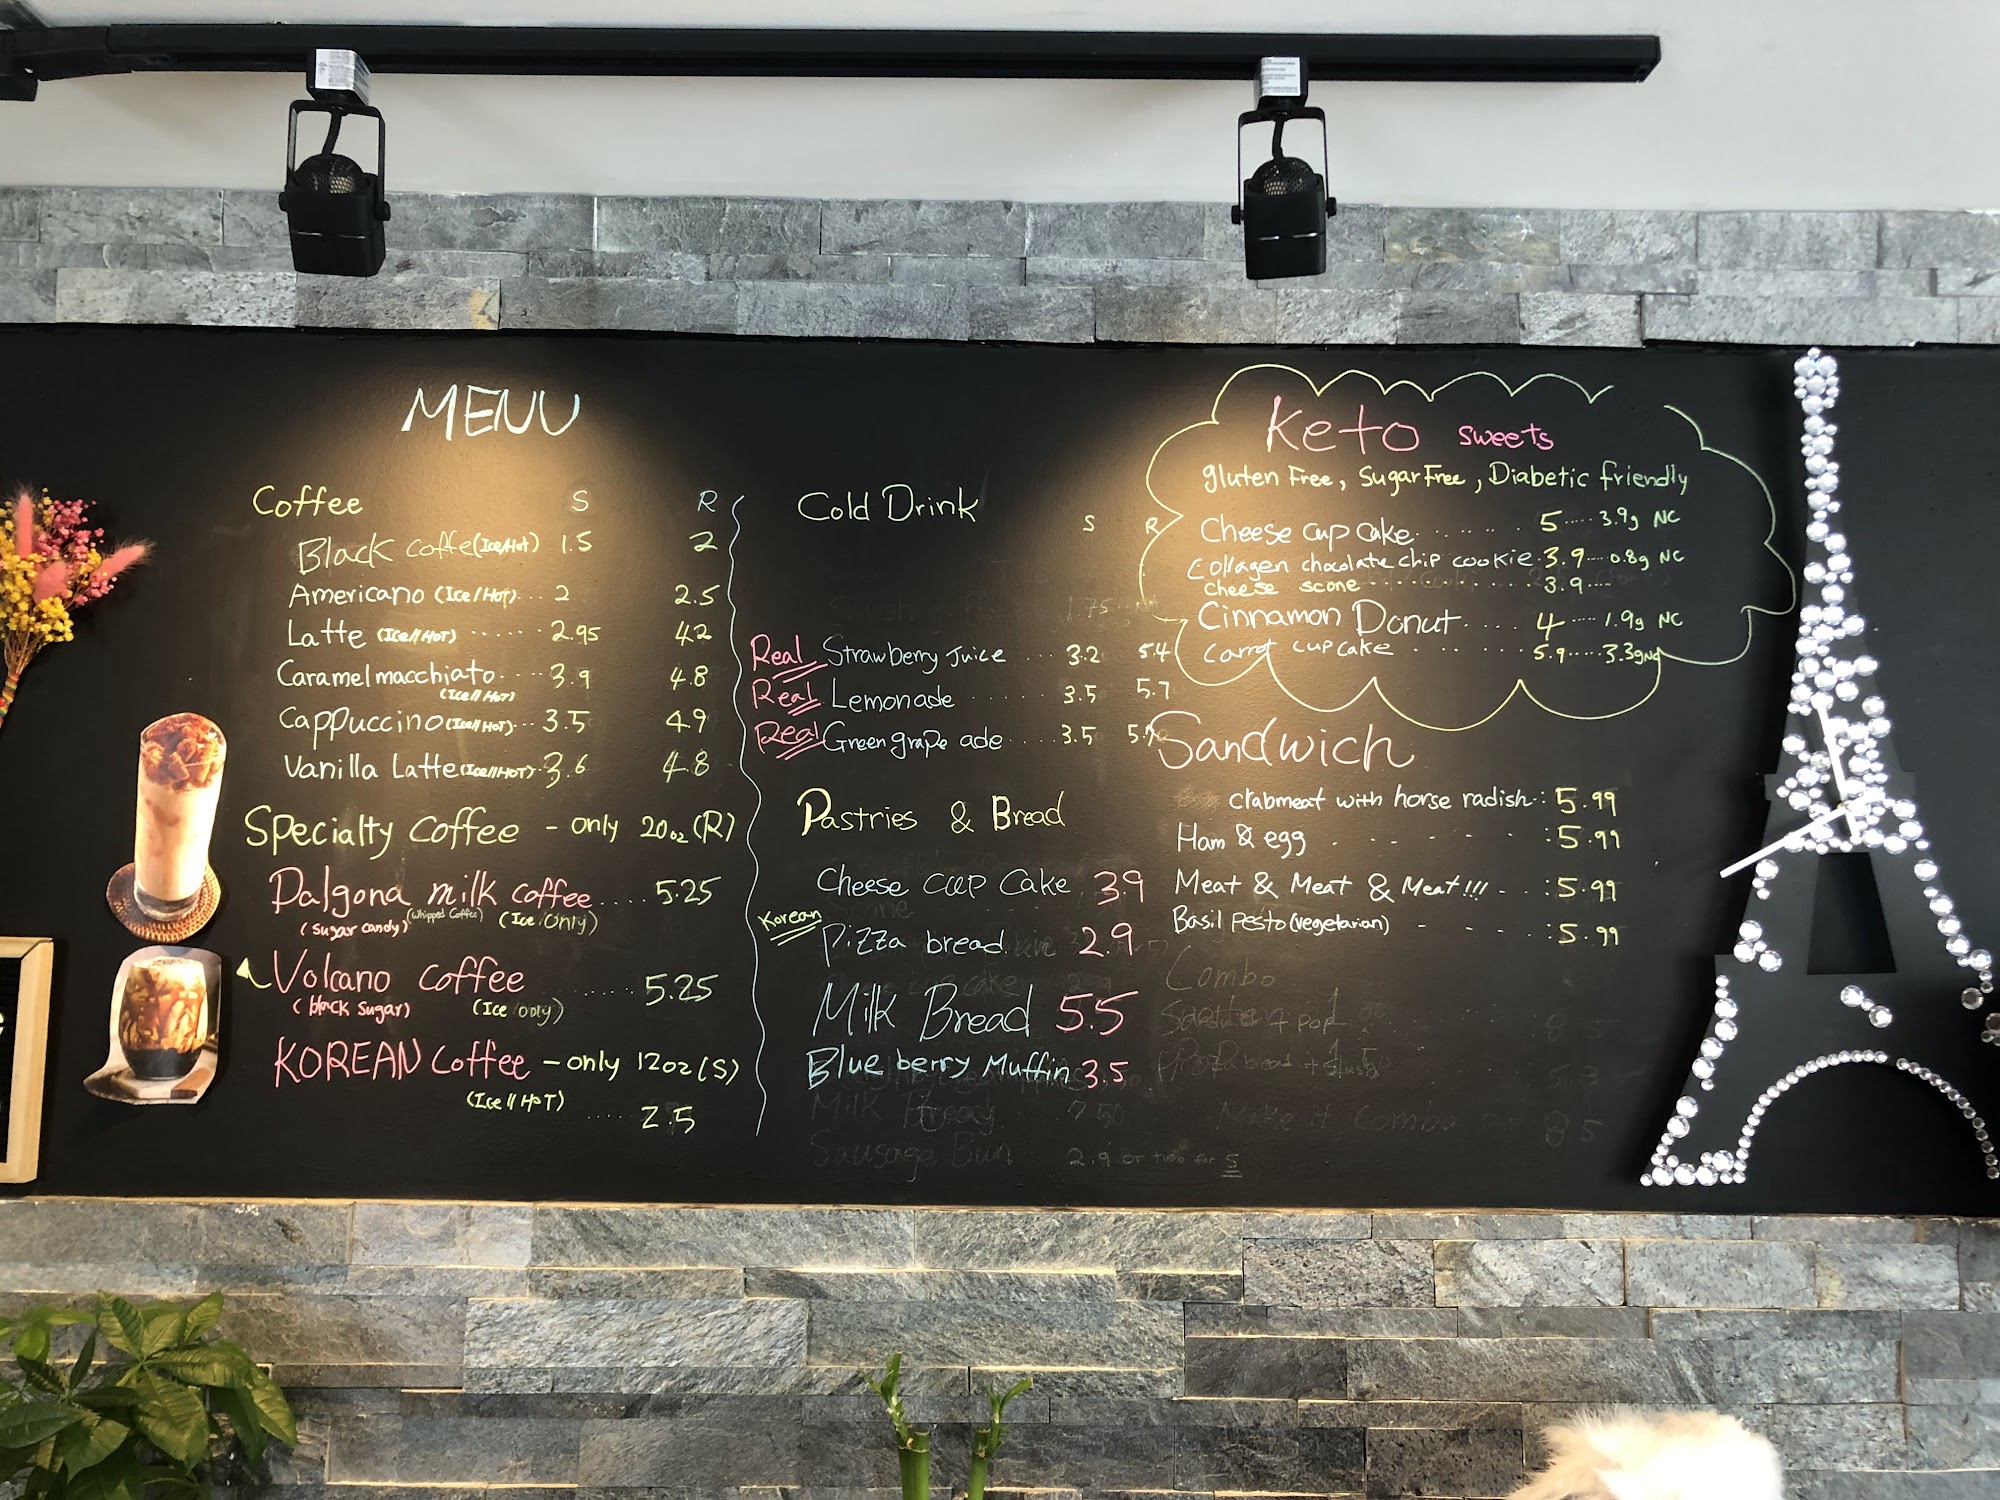 MENU
Coffee S R
Black coffe (Ice/Hot) 1.5 2
Americano (Ice/Hot)... 2 2.5
Latte (Ice//HOT) ...... 2.95 4.2
Caramel macchiato.... 3.9 4.8
(Ice//HOT)
Cappuccino (Ice//HOT)... 3.5 4.9
Vanilla Latte (Ice//HOT). 3.6 4.8
Specialty coffee - only 20oz (R)
Dalgona milk coffee.... 5.25
(sugar candy) (Whipped Coffee) (Ice only)
Volcano coffee ...... 5.25
(black sugar) (Ice only)
KOREAN coffee - only 12oz (S)
(Ice//HOT) ..... 2.5
Cold Drink
S R
1.75
Real Strawberry Juice ... 3.2 5.4
Real Lemonade ...... 3.5 5.7
Real Green grape ade .... 3.5 5.7
Pastries & Bread
Cheese cup cake 3.9
Korean Pizza bread 2.9
Milk Bread 5.5
Blue berry Muffin 3.5
Milk 7.50
Sausage Bun 2.9 or two for 5
Keto sweets
gluten Free, Sugar Free, Diabetic friendly
Cheese cup cake....... 5 ..... 3.9g NC
Collagen chocolate chip cookie. 3.9.... 0.8g NC
cheese scone ........ 3.9....
Cinnamon Donut.... 4 ..... 1.9g NC
Carrot cupcake ...... 5.9..... 3.3g NC
Sandwich
Crabmeat with horse radish..: 5.99
Ham & egg . - - . - - - :5.99
Meat & Meat & Meat!!! - . . :5.99
Basil Pesto (vegetarian) - - - - . :5.99
Combo
+ pop
Make it combo 8.5